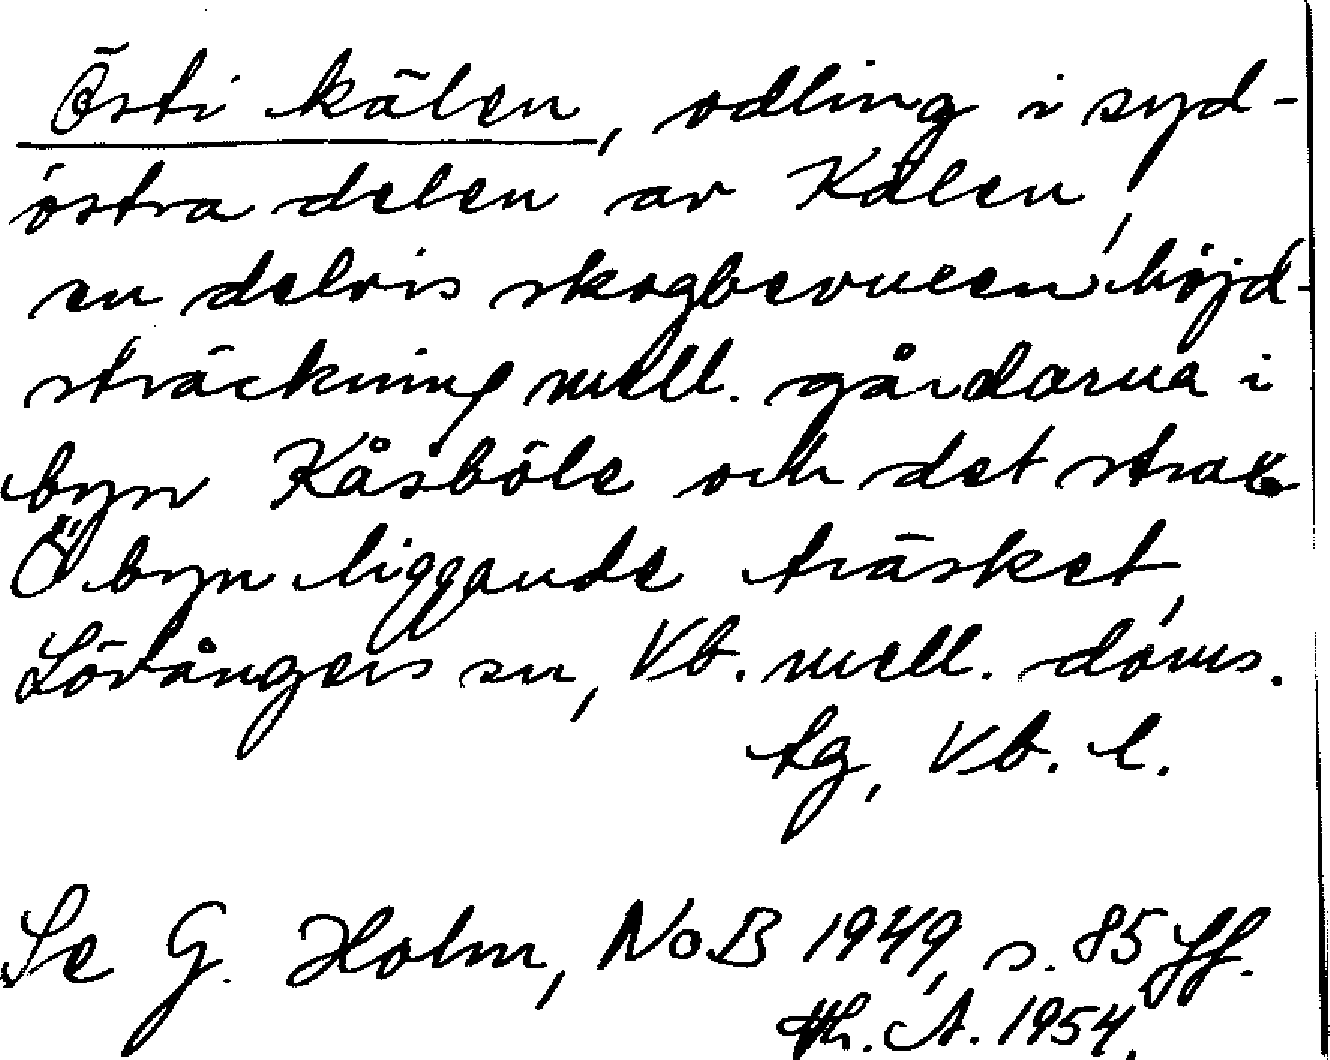 Östi kälen, odling i syd-
östra delen av Kälen,
en delvis skogbevuxen höjd-
sträckning mell. gårdarna i
byn Kåsböle och det strax
Ö byn liggande träsket,
Lövångers sn, Vb. mell. doms.
tg, Vb. l.
Se G. Holm, NoB 1949, s. 85 ff.
Th. A. 1954.